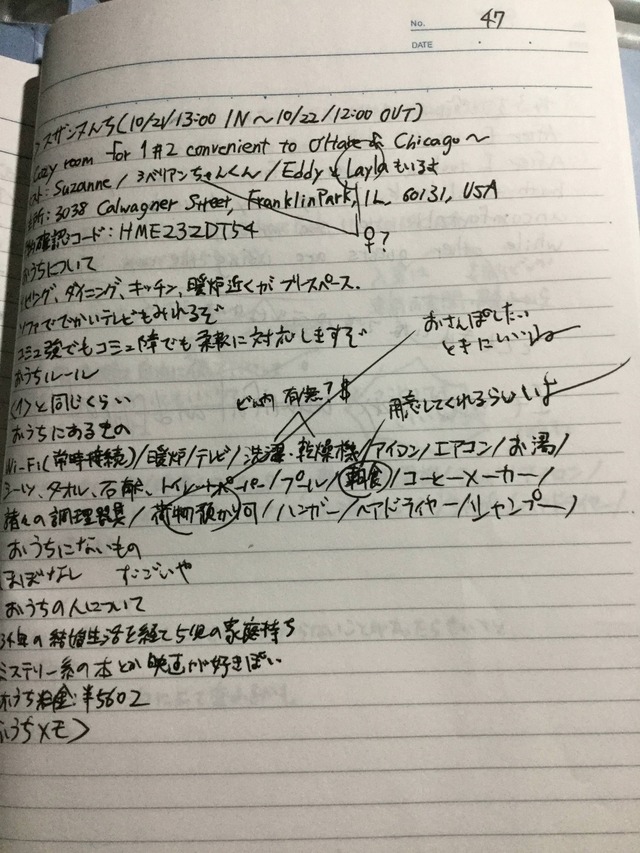 No. 47
DATE
スザンヌんち(10/21/13:00 IN～10/22/12:00 OUT)
Cozy room for 1#2 convenient to O'Hare & Chicago～
Suzanne/シベリアンちゃんくん/Eddy & Laylaもいるよ
3038 Calwagner Street, Franklin Park, IL 60131, USA
♀?
確認コード:HME232DT54
おうちについて
リビング、ダイニング、キッチン、暖炉近くがフリースペース.
ソファででかいテレビもみれるぞ
コミュ強でもコミュ障でも柔軟に対応しますぞ
おさんぽしたい
ときにいいね
おうちルール
〈1〉と同じくらい
有無? $
用意してくれるらしいよ
おうちにあるもの
Wi-Fi(常時接続)/暖炉/テレビ/洗濯・乾燥機/アイロン/エアコン/お湯/
シーツ、タオル、石鹸、トイレットペーパー/プール/朝食/コーヒーメーカー/
諸々の調理器具/荷物預かり可/ハンガー/ヘアドライヤー/シャンプー/
おうちにないもの
ほぼなし すごいや
おうちの人について
34年の結婚生活を経て5児の家庭持ち
ミステリー系の本とか映画が好きぽい
おうち料金:¥5602
おうちメモ〉